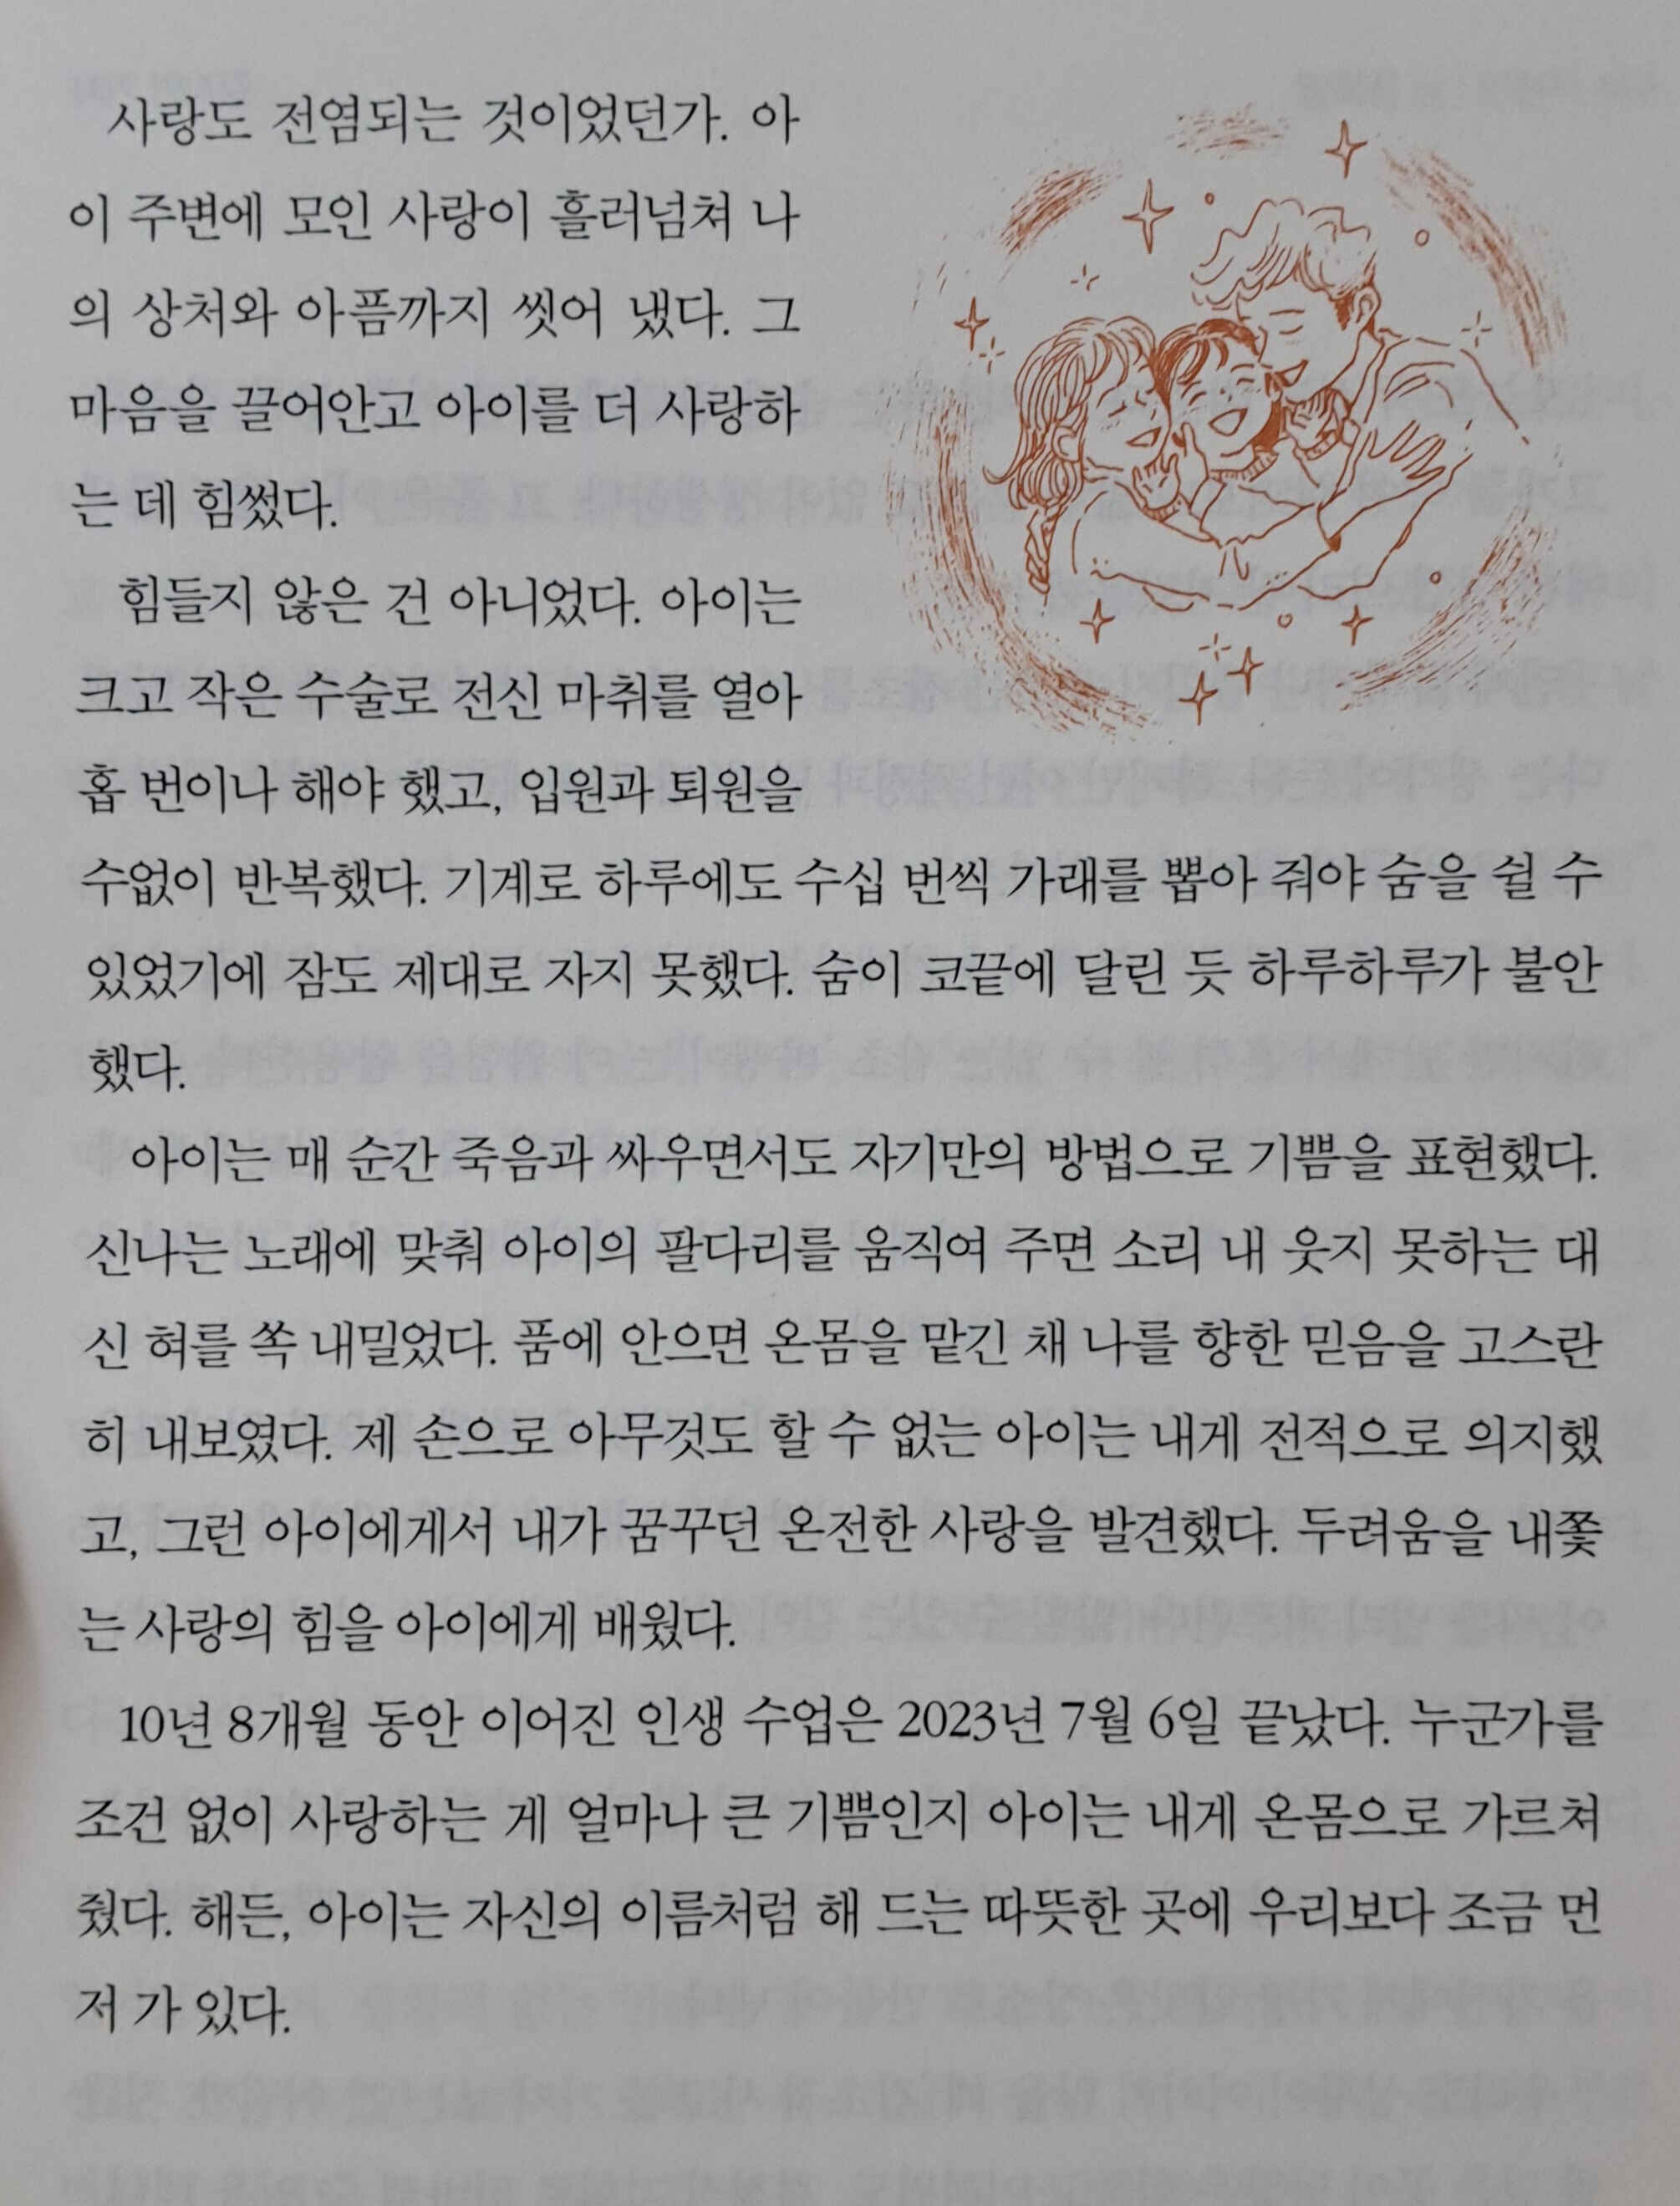 사랑도 전염되는 것이었던가. 아
이 주변에 모인 사랑이 흘러넘쳐 나
의 상처와 아픔까지 씻어 냈다. 그
마음을 끌어안고 아이를 더 사랑하
는 데 힘썼다.
힘들지 않은 건 아니었다. 아이는
크고 작은 수술로 전신 마취를 열아
홉 번이나 해야 했고, 입원과 퇴원을
수없이 반복했다. 기계로 하루에도 수십 번씩 가래를 뽑아 줘야 숨을 쉴 수
있었기에 잠도 제대로 자지 못했다. 숨이 코끝에 달린 듯 하루하루가 불안
했다.
아이는 매 순간 죽음과 싸우면서도 자기만의 방법으로 기쁨을 표현했다.
신나는 노래에 맞춰 아이의 팔다리를 움직여 주면 소리 내 웃지 못하는 대
신 혀를 쏙 내밀었다. 품에 안으면 온몸을 맡긴 채 나를 향한 믿음을 고스란
히 내보였다. 제 손으로 아무것도 할 수 없는 아이는 내게 전적으로 의지했
고, 그런 아이에게서 내가 꿈꾸던 온전한 사랑을 발견했다. 두려움을 내쫓
는 사랑의 힘을 아이에게 배웠다.
10년 8개월 동안 이어진 인생 수업은 2023년 7월 6일 끝났다. 누군가를
조건 없이 사랑하는 게 얼마나 큰 기쁨인지 아이는 내게 온몸으로 가르쳐
줬다. 해든, 아이는 자신의 이름처럼 해 드는 따뜻한 곳에 우리보다 조금 먼
저 가 있다.